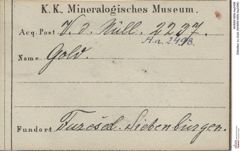 K. K. Mineralogisches Museum.
Acq. Post V. d. Nüll. 2237.
A.a. 2498.
Name Gold.
Fundort Siebenbürgen.